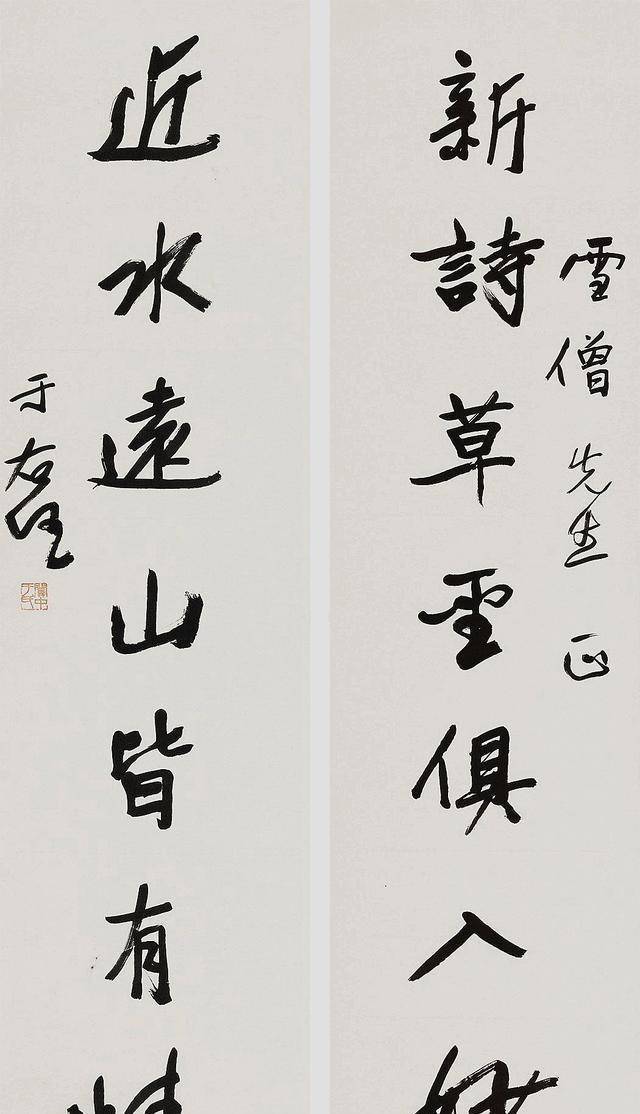 雪僧先生正
新詩草聖俱入
近水遠山皆有
于右任
關中于氏